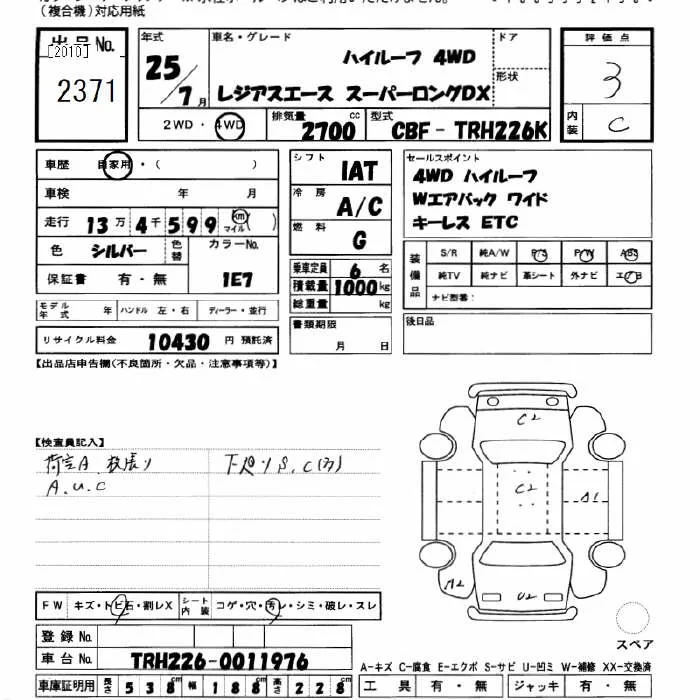 (複合機)対応用紙
出品No.
[2010]
2371
年式
25/7月
車名・グレード
ハイルーフ 4WD
レジアスエース スーパーロングDX
ドア
形状
2WD・4WD
排気量 2700 cc
型式 CBF-TRH226K
評価点
3
内装 C
車歴 自家用・( )
車検 年 月
走行 13万4千599 km マイル( )
色 シルバー 色替 カラーNo. 1E7
保証書 有・無
モデル年式 年 ハンドル 左・右 ディーラー・並行
リサイクル料金 10430 円 預託済
シフト IAT
冷房 A/C
燃料 G
乗車定員 6 名
積載量 1000 kg
総重量 kg
書類期限
月 日
セールスポイント
4WD ハイルーフ
Wエアバック ワイド
キーレス ETC
装備品
S/R 純A/W P/S P/W ABS
純TV 純ナビ 革シート 外ナビ エアB
ナビ型番:
後日品
【出品店申告欄(不良箇所・欠品・注意事項等)】
【検査員記入】
荷室A
A.U.C
下廻りS.C
C2
C2
A1
A2
U2
FW キズ・トビ石・割レX シート内装 コゲ・穴・汚レ・シミ・破レ・スレ
登録No.
車台No. TRH226-0011976
車庫証明用 長さ 538cm 幅 188cm 高さ 228cm
スペア
A-キズ C-腐食 E-エクボ S-サビ U-凹ミ W-補修 XX-交換済
工具 有・無 ジャッキ 有・無